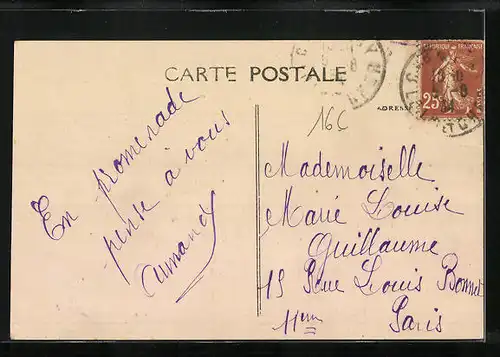 CARTE POSTALE
ADRESSE
RÉPUBLIQUE FRANÇAISE
25
16C
En promenade
pense à vous
Armand
Mademoiselle
Marie Louise
Guillaume
19 Rue Louis Bonnet
11em
Paris